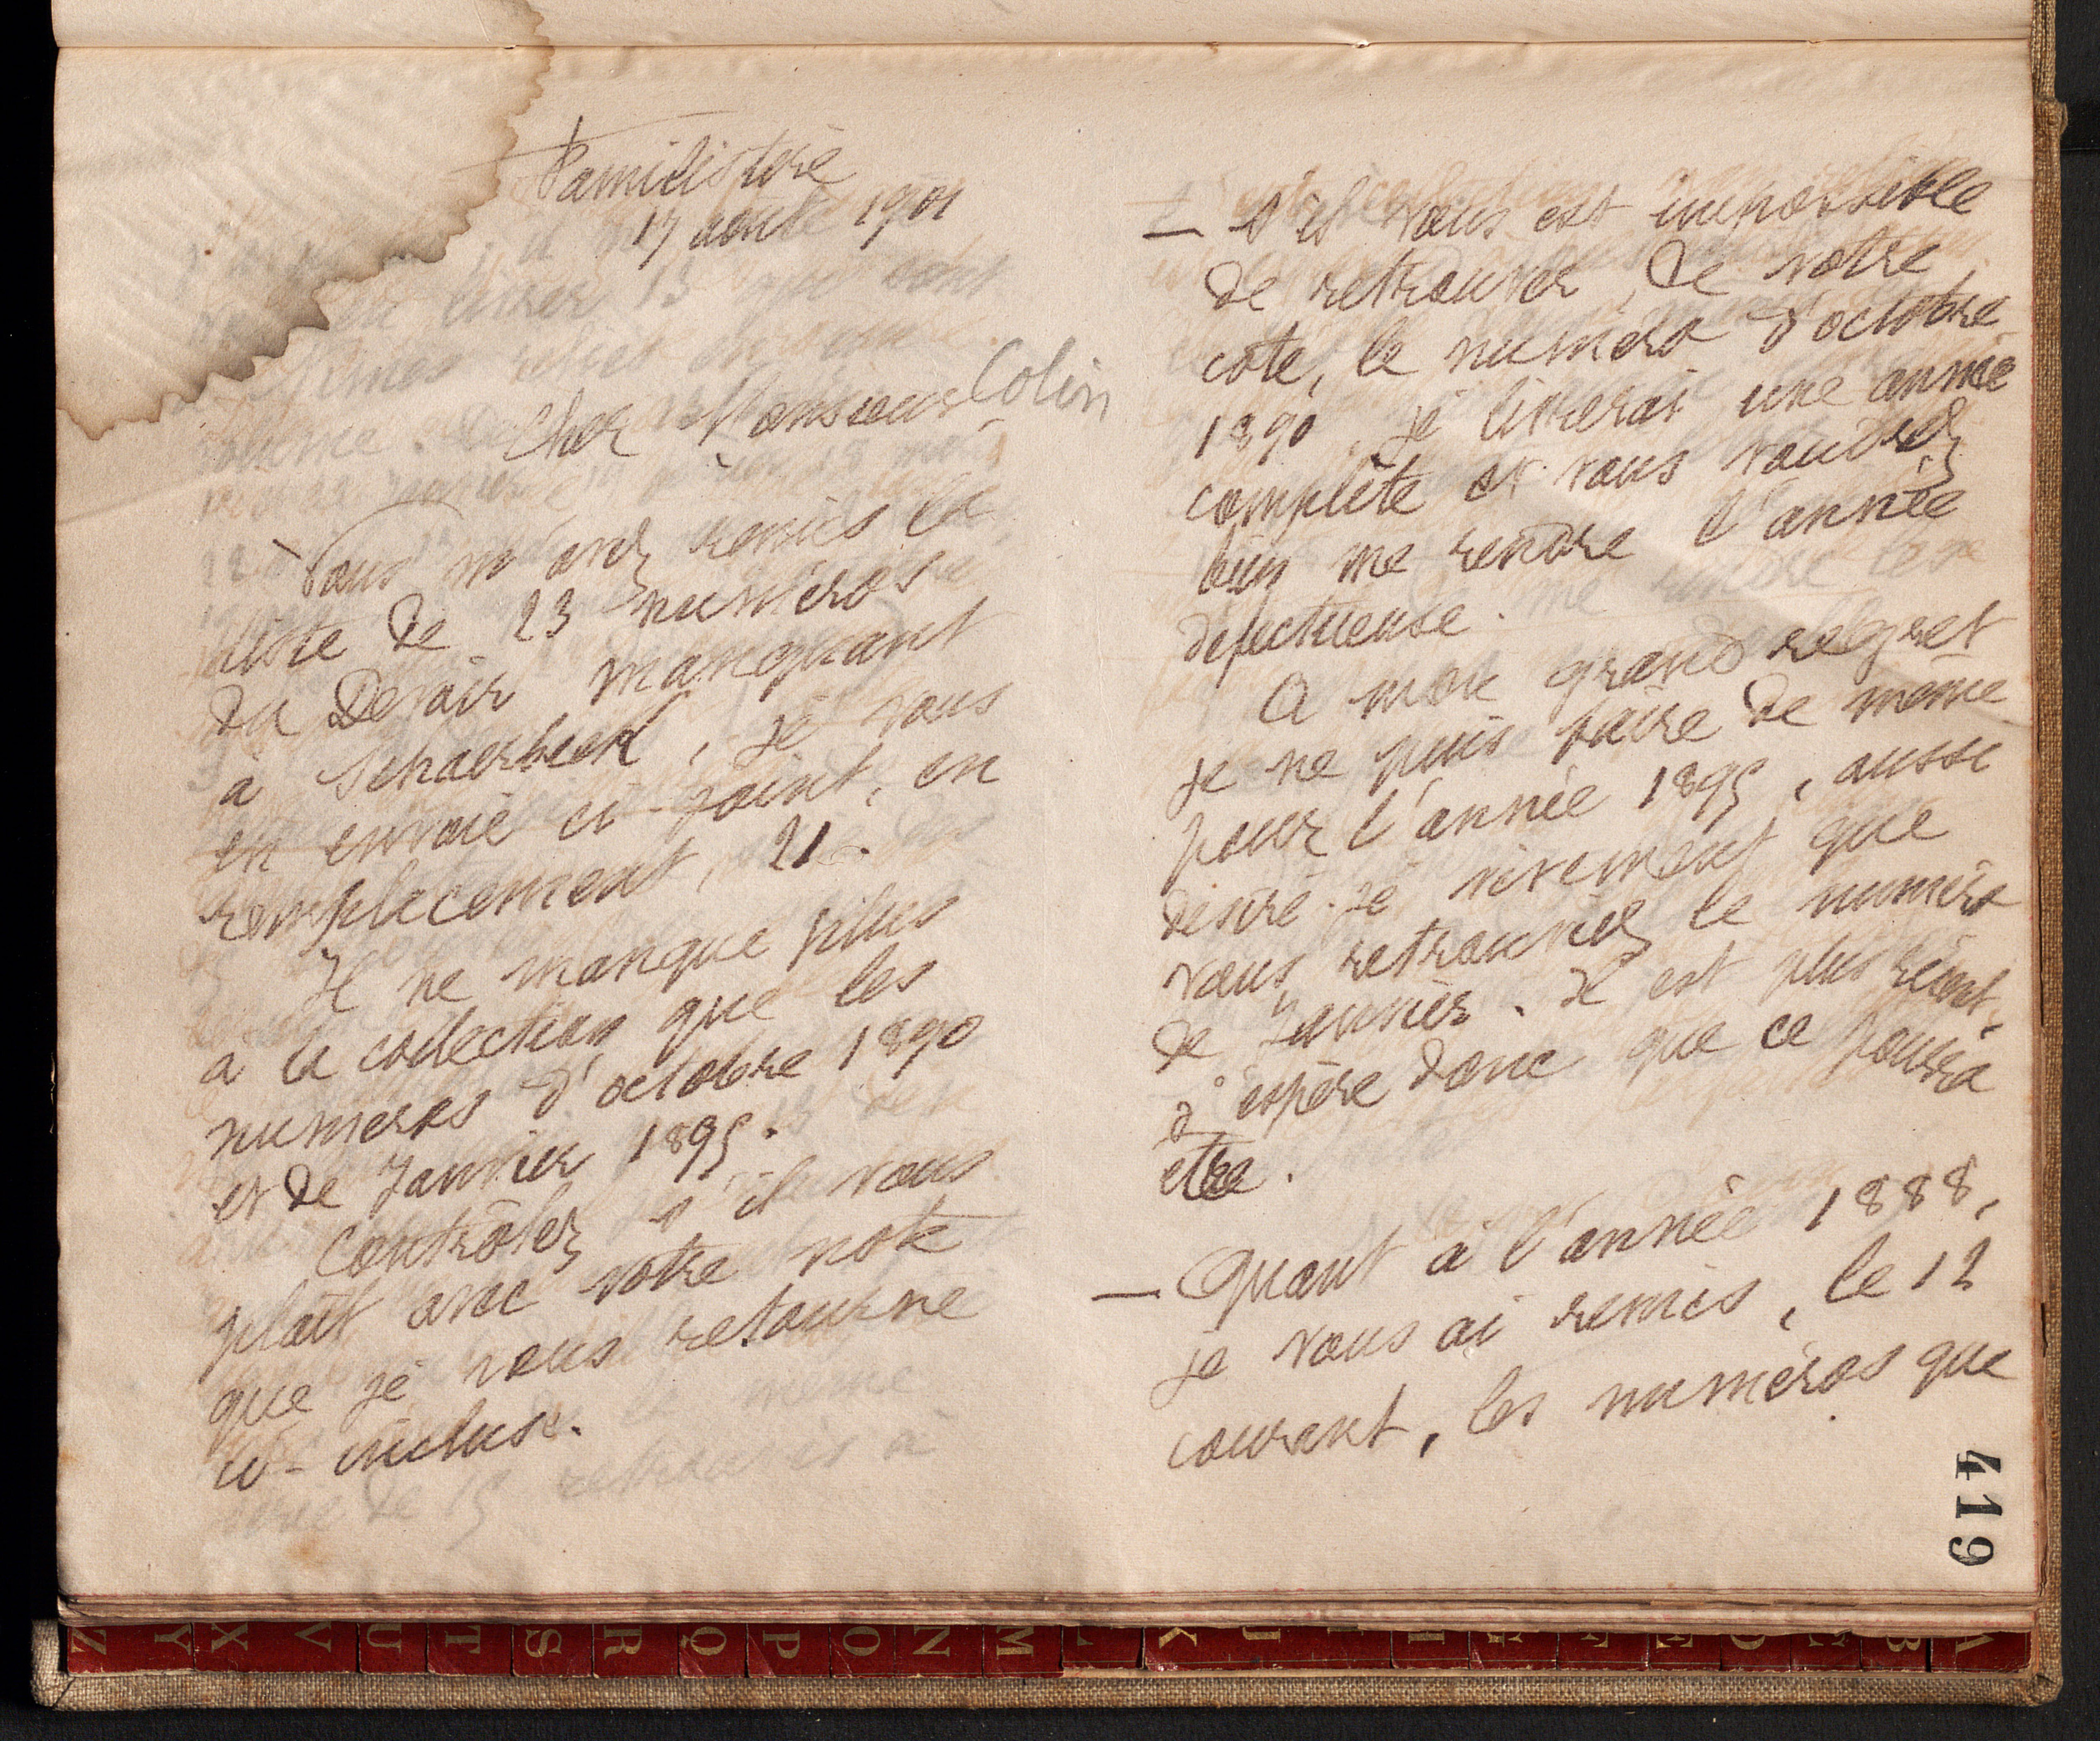 Familistère
17 août 1901
Cher Monsieur Colin
Vous m'avez remis la
liste de 23 numéros
du Devoir manquant
à Schaerbeek, je vous
en envoie ci-joint, en
remplacement, 21.
Il ne manque plus
à la collection que les
numéros d'octobre 1890
et de Janvier 1895.
Contrôlez s'il vous
plaît avec votre note
que je vous retourne
ci-incluse.
— S'il vous est impossible
de retrouver, de votre
côté, le numéro d'octobre
1890, je livrerai une année
complète et vous voudrez
bien me rendre l'année
défectueuse.
A mon grand regret
je ne puis faire de même
pour l'année 1895, aussi
désiré-je vivement que
vous retrouviez le numéro
de Janvier. Il est plus récent,
j'espère donc que ce pourra
être.
— Quant à l'année 1888,
je vous ai remis, le 12
courant, les numéros que
419
Z Y X V U T S R Q P O N M L K J I H G F E D C B A